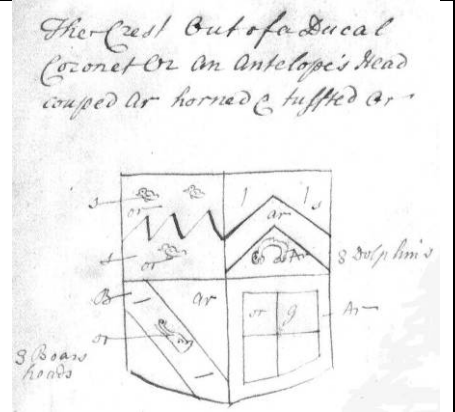 The Crest Out of a Ducal
Coronet Or An Antelope's Head
couped Ar horned & tuffted Or
s
or
ar
s
s
or
3 Dolphin's
B
ar
or
or
g
Ar
3 Boars
heads